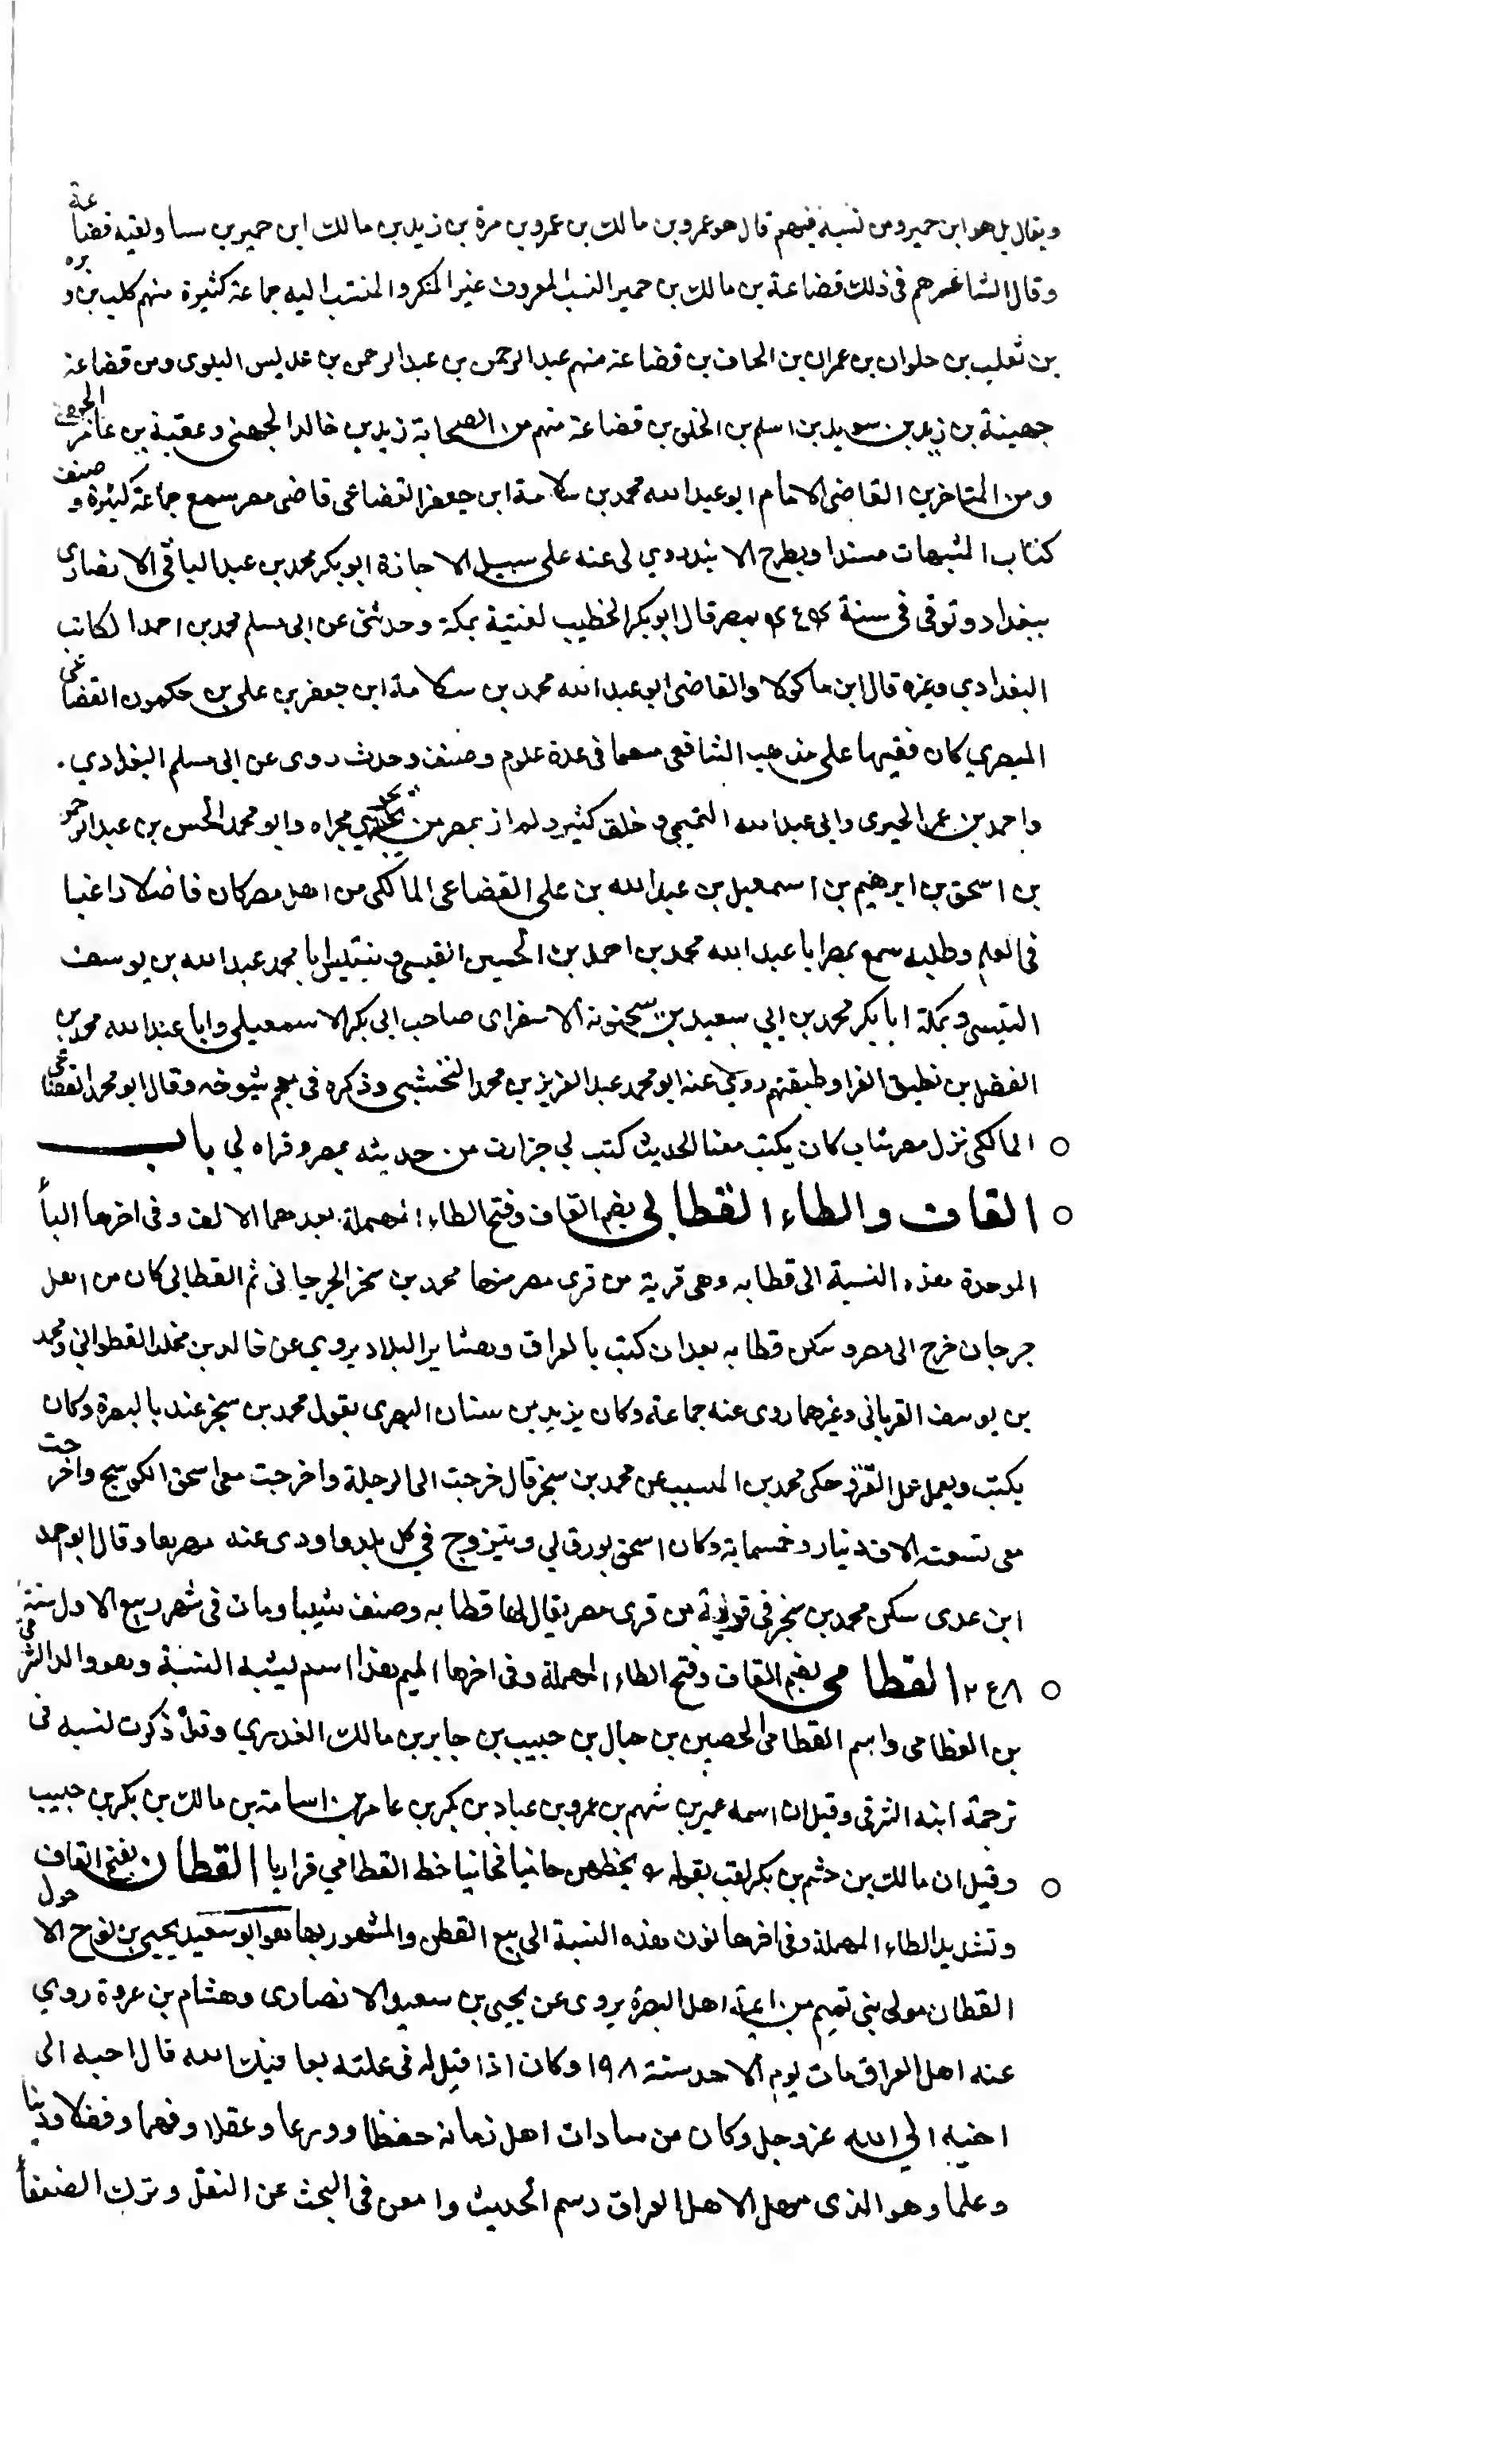 ويقال بل هو ابن حمير ومن نسبه فيهم قال هو عمرو بن مالك بن عمرو بن مرة بن زيد بن مالك ابن حمير بن سبا ولقبه قضاعة
وقال الشاعرهم في ذلك قضاعة بن مالك بن حمير النسب المعروف غير المنكر والمنتسب اليه جماعة كثيرة منهم كلب بن وبره
بن ثعلب بن حلوان بن عمران بن الحاف بن قضاعة منهم عبد الرحمن بن عبد الرحمن بن عديس البلوى ومن قضاعة
جهينة بن زيد بن سويد بن اسلم بن الخلى بن قضاعة منهم من الصحابة زيد بن خالد الجهني وعقبة بن عامر الجهني
ومن المتاخرين القاضي الامام ابو عبد الله محمد بن سلامة ابن جعفر القضاعي قاضي مصر سمع جماعة كثيرة وصنف
كتاب الشبهات مسندا ويطرح الا روي لي عنه على سبيل الاجازة ابو بكر محمد بن عبد الباقي الانصاري
ببغداد وتوفى في سنة بمصر قال ابو بكر الخطيب لقيته بمكة وحدثني عن ابي مسلم محمد بن احمد الكاتب
البغدادي وغيره قال ابن ماكولا والقاضي ابو عبد الله محمد بن سلامة ابن جعفر بن علي بن حكمون القضاعي
المصري كان فقيها على مذهب الشافعي في عدة علوم وصنف وحدث روى عن ابي مسلم البغدادي.
واحمد بن عمر الحيرى وابي عبد الله التميمي وخلق كثير ولم ار بمصر من يجري مجراه وابو محمد الحسن بن عبد الرحمن
بن اسحق بن ابرهيم بن اسمعيل بن عبد الله بن علي القضاعي المالكي من اهل مصر كان فاضلا راغبا
في العلم وطلبه سمع بمصر ابا عبد الله محمد بن احمد بن الحسين القيسي و ابا محمد عبد الله بن يوسف
التنيسي وبمكة ابا بكر محمد بن ابي سعيد بن سختونة الاسفراى صاحب ابي بكر الاسمعيلي وابا عبد الله محمد بن
الفضل بن نظيف الفرا وطبقتهم روى عنه ابو محمد عبد العزيز بن محمد النخشبي وذكره في معجم شيوخه وقال ابو محمد القضاعي
المالكي نزل مصر شاب كان يكتب معنا الحديث كتب لي جزازت من حديثه بمصر وقراه لي باب
القاف والطاء القطابي بضم القاف وفتح الطاء المهملة بعدهما الالف وفي اخرها البا
الموحدة هذه النسبة الى قطابه وهي قرية من قرى مصر منها محمد بن سنجر الجرجاني ثم القطابي كان من اهل
جرجان خرج الى مصر وسكن قطابه بعد ان كتب بالعراق و البلاد يروي عن خالد بن مخلد القطواني ومحمد
بن يوسف الفرياني وغيرهما روى عنه جماعة وكان يزيد بن سنان البصرى يقول محمد بن سنجر عند بالبصرة وكان
يكتب ويعمل عمل حكى محمد بن المسيب عن محمد بن سنجر قال خرجت الى الرحلة واخرجت معي اسحق الكوسج واخرجت
معي تسعت الاف دنيار وخمسماية وكان اسحق يورق لي ويتزوج في كل بلد واودى عنه مهرها وقال ابو احمد
ابن عدى سكن محمد بن سنجر في قرية من قرى مصر يقال لها قطابه وصنف شيبا ومات في شهر ربيع الاول سنة
٢٤٨ القطامي بضم القاف وفتح الطاء المهملة وفي اخرها الميم هذا اسم يشبه النسبة وهو والد الشرقي
بن القطامي واسم القطامي الحصين بن جمال بن حبيب بن جابر بن مالك وقد ذكرت نسبه في
ترجمة ابنه الشرقي وقيل ان اسمه عمير بن شهم بن عمرو بن عباد بن بكر بن عامر بن اسامة بن مالك بن بكر بن حبيب
وقيل ان مالك بن جشم بن بكر لقب بقوله يحطهن جانبا فجانبا حط القطامي قرابا القطان بفتح القاف
وتشديد الطاء المهملة وفي اخرها نون هذه النسبة الى بيع القطن والمشهور بها هو ابو سعيد يحيى بن فروخ الاحول
القطان مولى بني تميم من ايمة اهل البصرة يروى عن يحيى بن سعيد الانصارى وهشام بن عروة روي
عنه اهل العراق مات يوم الاحد سنة ١٩٨ وكان اذا قيل له في علته يعافيك الله قال احبه الى
احبه الي الله عز وجل وكان من سادات اهل زمانه حفظا وورعا وعقلا وفهما وفضلا ودينا
وعلما وهو الذى مهل الاهل العراق رسم الحديث وامعن في البحث عن النقل وترك الضعفا